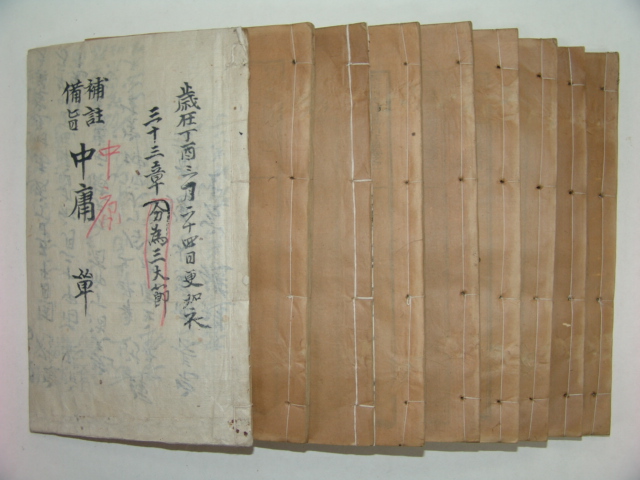 歲在丁酉三月二十四日更加衣
三十三章分為三大節
補註
備旨
中庸 單
中庸